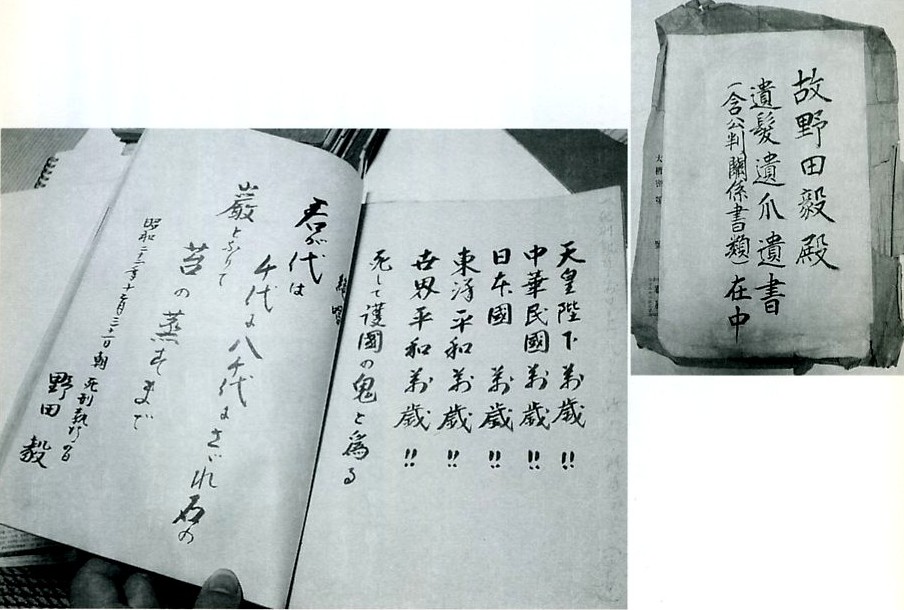 天皇陛下萬歳!!
中華民國萬歳!!
日本國萬歳!!
東洋平和萬歳!!
世界平和萬歳!!
死して護國の鬼と為る
君が代は
千代に八千代にさざれ石の
巌となりて
苔の蒸すまで
昭和二十三年 朝 死刑執行の日
野田毅
故野田毅殿
遺髪遺爪遺書
(含公判關係書類)在中